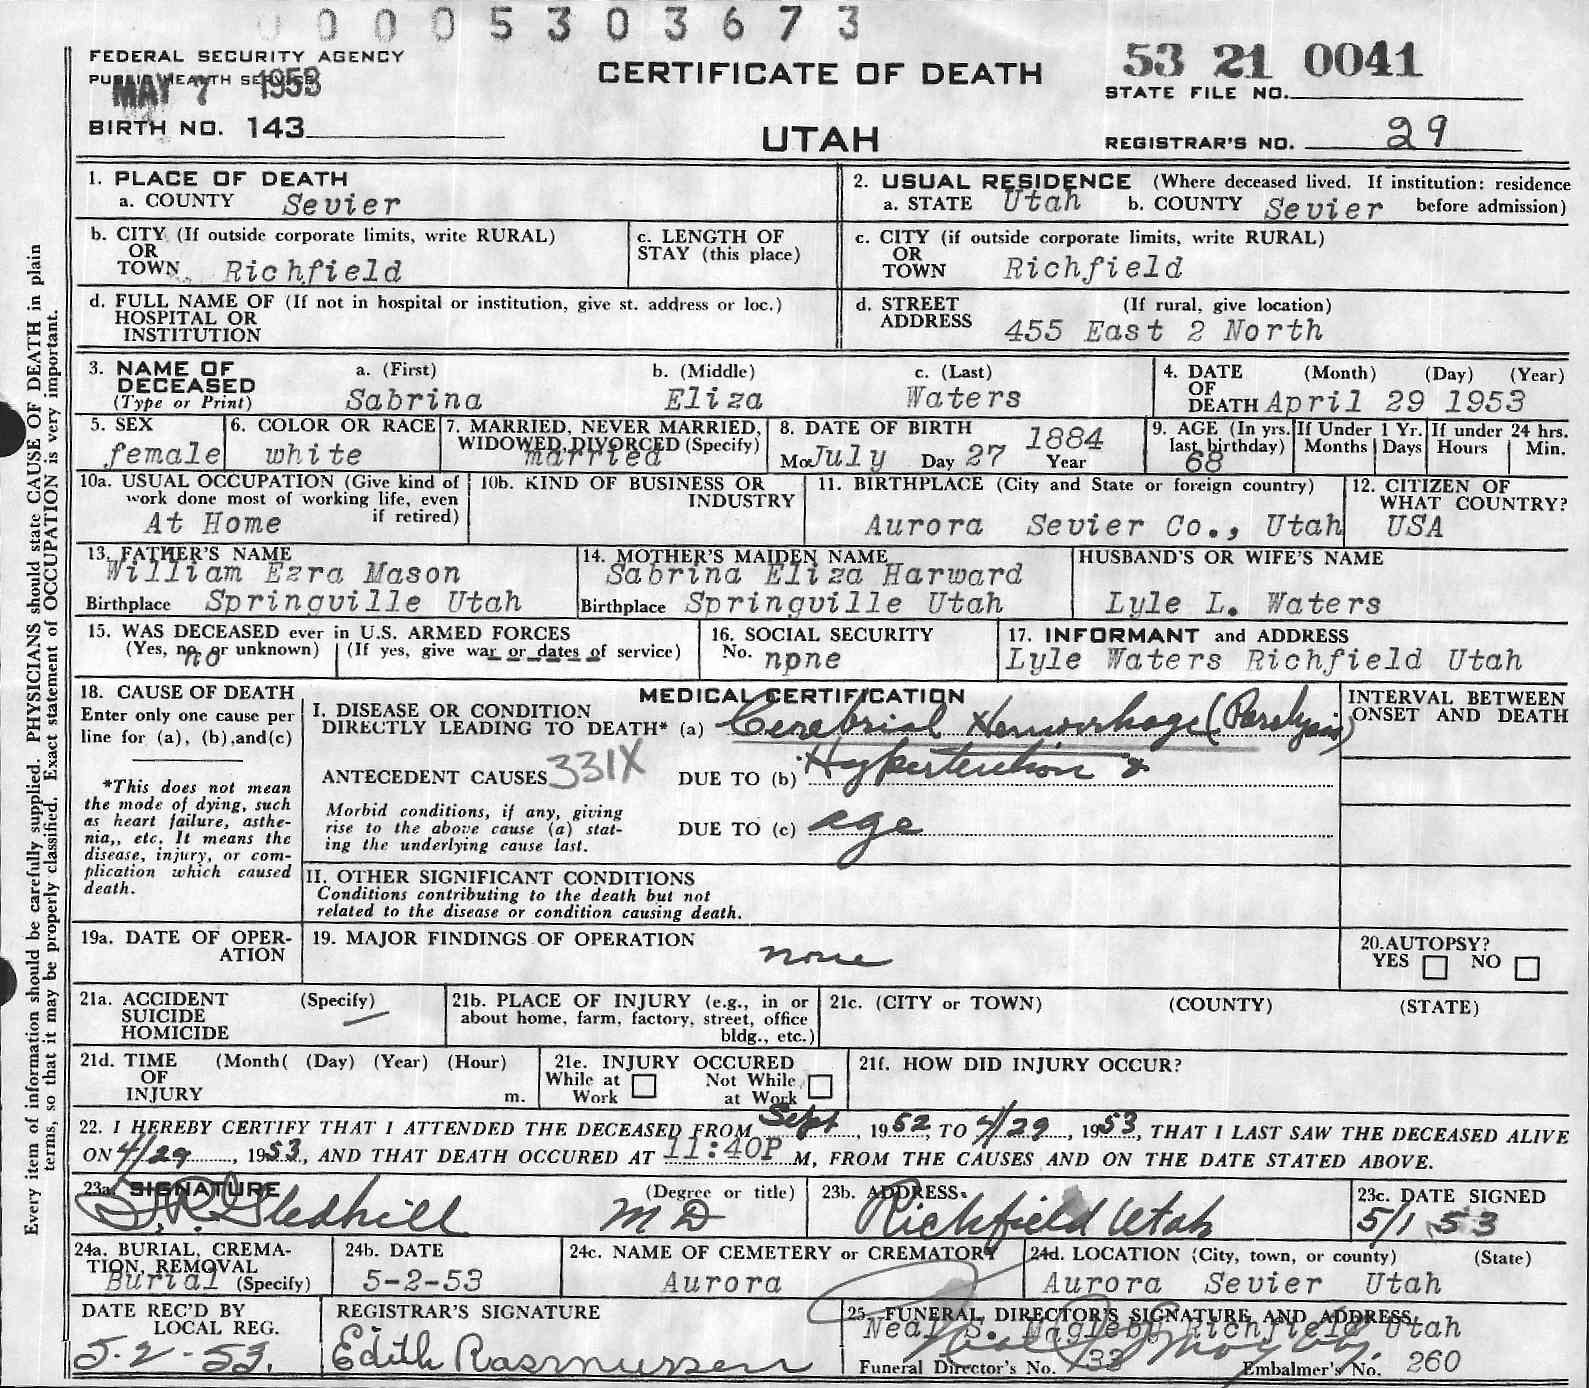 0005303673
FEDERAL SECURITY AGENCY
PUBLIC HEALTH SERVICE
MAY 7 1953
BIRTH NO. 143
CERTIFICATE OF DEATH
UTAH
53 21 0041
STATE FILE NO.
REGISTRAR'S NO. 29
Every item of information should be carefully supplied. PHYSICIANS should state CAUSE OF DEATH in plain
terms, so that it may be properly classified. Exact statement of OCCUPATION is very important.
1. PLACE OF DEATH
a. COUNTY Sevier
2. USUAL RESIDENCE (Where deceased lived. If institution: residence
a. STATE Utah b. COUNTY Sevier before admission)
b. CITY (If outside corporate limits, write RURAL)
OR
TOWN Richfield
c. LENGTH OF
STAY (this place)
c. CITY (if outside corporate limits, write RURAL)
OR
TOWN Richfield
d. FULL NAME OF (If not in hospital or institution, give st. address or loc.)
HOSPITAL OR
INSTITUTION
d. STREET (If rural, give location)
ADDRESS 455 East 2 North
3. NAME OF
DECEASED
(Type or Print)
a. (First) b. (Middle) c. (Last)
Sabrina Eliza Waters
4. DATE (Month) (Day) (Year)
OF
DEATH April 29 1953
5. SEX
female
6. COLOR OR RACE
white
7. MARRIED, NEVER MARRIED,
WIDOWED, DIVORCED (Specify)
married
8. DATE OF BIRTH 1884
Mo July Day 27 Year
9. AGE (In yrs.
last birthday)
68
If Under 1 Yr.
Months Days
If under 24 hrs.
Hours Min.
10a. USUAL OCCUPATION (Give kind of
work done most of working life, even
if retired)
At Home
10b. KIND OF BUSINESS OR
INDUSTRY
11. BIRTHPLACE (City and State or foreign country)
Aurora Sevier Co., Utah
12. CITIZEN OF
WHAT COUNTRY?
USA
13. FATHER'S NAME
William Ezra Mason
Birthplace Springville Utah
14. MOTHER'S MAIDEN NAME
Sabrina Eliza Harward
Birthplace Springville Utah
HUSBAND'S OR WIFE'S NAME
Lyle L. Waters
15. WAS DECEASED ever in U.S. ARMED FORCES
(Yes, no or unknown) (If yes, give war or dates of service)
no
16. SOCIAL SECURITY
No. npne
17. INFORMANT and ADDRESS
Lyle Waters Richfield Utah
18. CAUSE OF DEATH
Enter only one cause per
line for (a), (b), and (c)
*This does not mean
the mode of dying, such
as heart failure, asthe-
nia,, etc. It means the
disease, injury, or com-
plication which caused
death.
MEDICAL CERTIFICATION
I. DISEASE OR CONDITION
DIRECTLY LEADING TO DEATH* (a) Cerebrial Hemorrhage (Paralysis)
ANTECEDENT CAUSES 331X DUE TO (b) Hypertention &
Morbid conditions, if any, giving
rise to the above cause (a) stat-
ing the underlying cause last.
DUE TO (c) age
INTERVAL BETWEEN
ONSET AND DEATH
II. OTHER SIGNIFICANT CONDITIONS
Conditions contributing to the death but not
related to the disease or condition causing death.
19a. DATE OF OPER-
ATION
19. MAJOR FINDINGS OF OPERATION
none
20. AUTOPSY?
YES NO
21a. ACCIDENT (Specify)
SUICIDE
HOMICIDE
21b. PLACE OF INJURY (e.g., in or
about home, farm, factory, street, office
bldg., etc.)
21c. (CITY or TOWN) (COUNTY) (STATE)
21d. TIME (Month( (Day) (Year) (Hour)
OF
INJURY m.
21e. INJURY OCCURED
While at Work Not While at Work
21f. HOW DID INJURY OCCUR?
22. I HEREBY CERTIFY THAT I ATTENDED THE DECEASED FROM Sept, 1952, TO 4/29, 1953, THAT I LAST SAW THE DECEASED ALIVE
ON 4/29, 1953, AND THAT DEATH OCCURED AT 11:40P M, FROM THE CAUSES AND ON THE DATE STATED ABOVE.
23a. SIGNATURE (Degree or title)
Gledhill MD
23b. ADDRESS
Richfield Utah
23c. DATE SIGNED
5/1 53
24a. BURIAL, CREMA-
TION, REMOVAL
Burial (Specify)
24b. DATE
5-2-53
24c. NAME OF CEMETERY or CREMATORY
Aurora
24d. LOCATION (City, town, or county) (State)
Aurora Sevier Utah
DATE REC'D BY
LOCAL REG.
5-2-53.
REGISTRAR'S SIGNATURE
Edith Rasmussen
25. FUNERAL DIRECTOR'S SIGNATURE AND ADDRESS
Neal S. Magleby Richfield Utah
Funeral Director's No. 33 Embalmer's No. 260